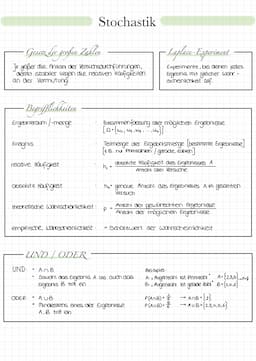 Stochastik
Gesetz der großen Zahlen
Je größer die Anzahl der Versuchsdurchführungen,
desto stabiler liegen die relativen Häufigkeiten
an der Vermutung
Laplace-Experiment
Experimente, bei denen jedes
Ergebnis mit gleicher Wahr-
scheinlichkeit
Begrifflichkeiten
Ergebnisraum / -menge : Zusammenfassung aller möglichen Ergebnisse
Ereignis : Teilmenge der Ergebnismenge (bestimmte Ergebnisse)
relative Häufigkeit : absolute Häufigkeit des Ergebnisses A
Anzahl aller Versuche
absolute Häufigkeit : genaue Anzahl des Ergebnisses A in gesamten
Versuch
theoretische Wahrscheinlichkeit : P = Anzahl der gewünschten Ergebnisse
Anzahl der möglichen Ergebnisse
empirische Wahrscheinlichkeit : Schätzwert der Wahrscheinlichkeit
UND / ODER
UND • A ∩ B
• Sowohl das Ergebnis A als auch das
Ergebnis B tritt ein
ODER • A ∪ B
• Mindestens eines der Ergebnisse
A, B tritt ein
Beispiel
A = Augenzahl ist Primzahl
B = Augenzahl ist gerade Zahl